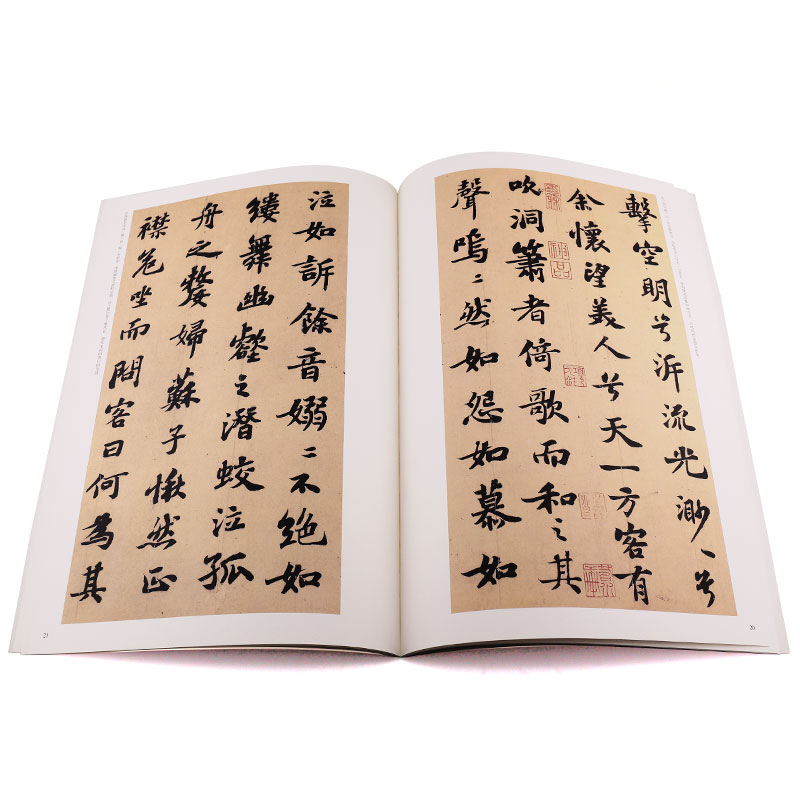 擊空明兮泝流光渺〻兮
余懷望美人兮天一方客有
吹洞簫者倚歌而和之其
聲嗚〻然如怨如慕如
20
泣如訴餘音嫋〻不絕如
縷舞幽壑之潛蛟泣孤
舟之嫠婦蘇子愀然正
襟危坐而問客曰何為其
21